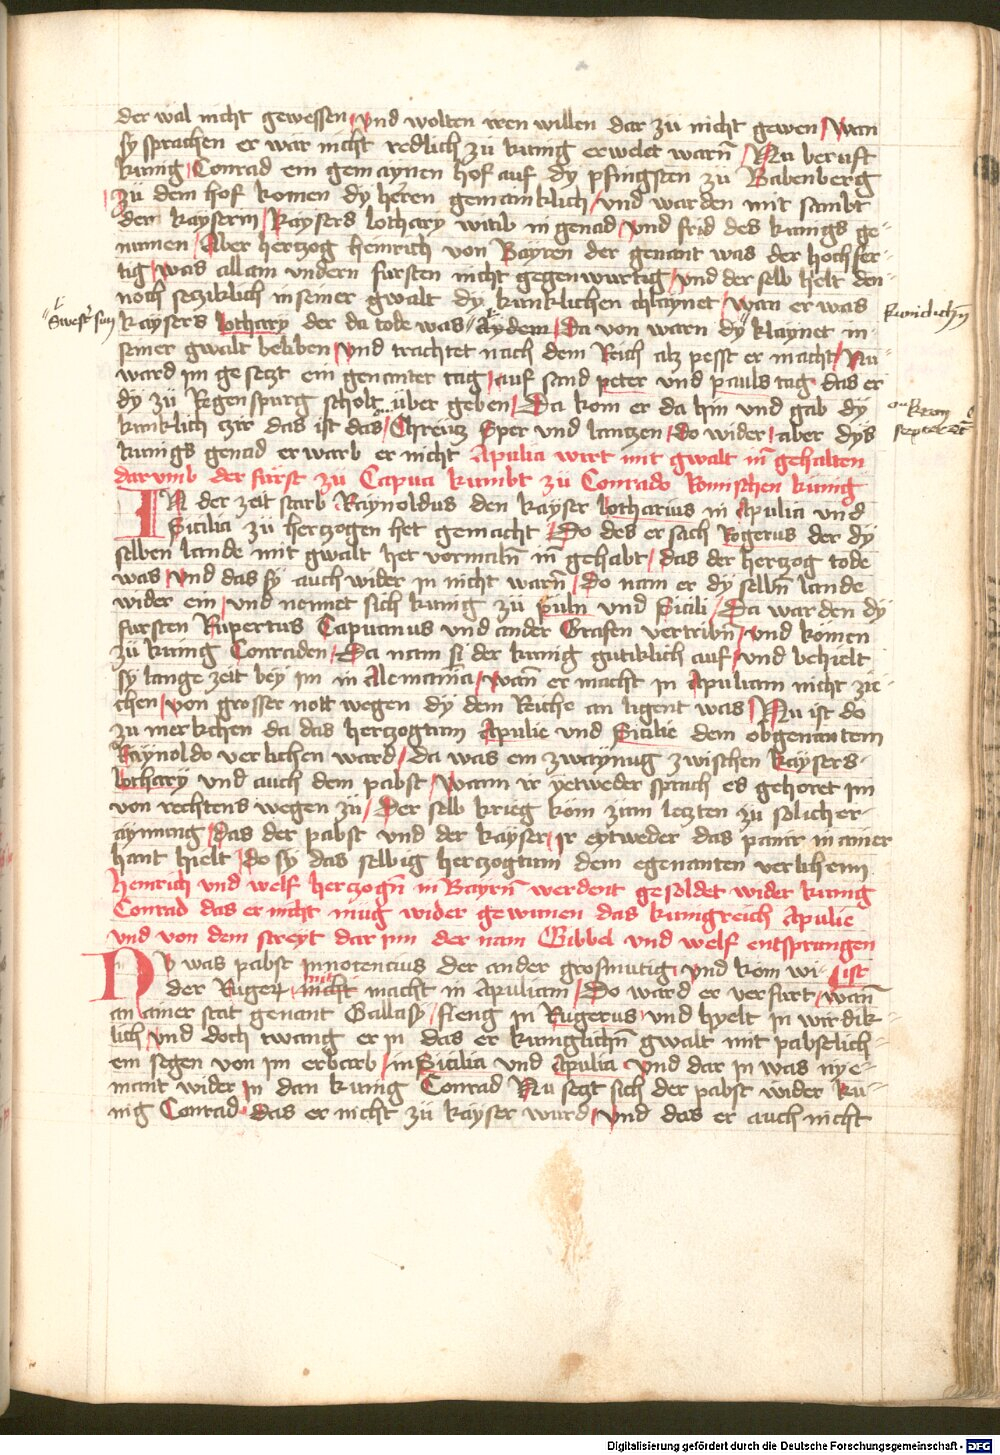 der wal nicht gewessen / vnd wolten iren willen dar zü nicht geben / Wan
sy sprachen er wär nicht redlich zü kunig erwelet warn̄ / Nu berüft
kunig / Conrad ein gemaynen hof auf dy pfingsten zü Babenberg
zü dem hof komen dy heren gemainklich / vnd warden mit sambt
der kayserin / kaysers lothary witib in genad / vnd frid des kunigs ge-
numen / Aber hertzog heinrich von Bayren der genant was der hochfer-
tig / was allain vndern fürsten nicht gegenwürtig / vnd der selb helt den-
noch setziklich in seiner gwalt dy kunklichen chlaynet / wan er was
Swester sun
kaysers lothary der da tode was aydem / Da von warn dy klaynet in-
kunichlichn̄
seiner gwalt beliben / vnd trachtet nach dem Reich alz pesst er macht / Nu
ward im gesetzt ein genanter tag / auf sand peter und pauls tag das er
dy zü Regenspurg scholt über geben / Da kom er da hin und gab dy
kron
kunklich czir das ist das / Chreütz Sper vnd lantzen / do wider / aber dys
scepter etc
kunigs genad erwarb er nicht Apulia wirt mit gwalt in̄ gehalten
darumb der fürst zü Capua kumbt zü Conrado Romischen kunig
IN der zeit starb Raynoldus den kayser lotharius in Apulia vnd
Sicilia zü hertzogen het gemacht / Do des ersach Rogerus der dy
selben lande mit gwalt het vormaln̄ in̄ gehabt / das der hertzog tode
was / vnd das sy auch wider in nicht warn̄ / do nam er dy selbn̄ lande
wider ein / vnd nennet sich kunig zü püln vnd Sicili / Da warden dy
fürsten Rupertus Capuanus vnd ander Grafen vertribn̄ / vnd komen
zü kunig Conraden / Da nam si der kunig gütiklich auf / vnd behielt
sy lange zeit bey im in Alemania / wan̄ er macht in Apuliam nicht zie-
chen / von grosser nott wegen dy dem Reiche an ligent was / Nu ist do
zu merkchen da das hertzogtum Apulie vnd Sicilie dem obgenantem
Raynoldo verlichen ward / da was ein zwaynug zwischen kaysers
lothary vnd auch dem pabst / wann ir yetweder sprach es gehoret im
von rechtens wegen zü / Der selb krieg kom zum letzten zü solicher
aynung / das der pabst vnd der kayser / ir eytweder das panir in ainer
hant hielt / do sy das selbig hertzogtum dem egenanten verlihenn
heinrich vnd welf hertzogn̄ in Bayrn̄ werdent gesoldet wider kunig
Conrad das er nicht müg wider gewinen das kunigreich Apulie
vnd von dem streyt dar inn der nam Gibbel vnd welf entsprangen
NV was pabst Innotencius der ander grosmütig / vnd kom wi-
der Ruger / macht in Apuliam / Do ward er verfürt / wan̄
an ainer stat genant / fieng in Rugerus / vnd hyelt in wirdik-
lich / vnd doch twang er in das er kuniglichn̄ gwalt mit pabstlich-
em segen von im erbarb / in Sicilia vnd Apulia vnd dar in was nye-
mant wider in dan kunig Conrad Nu setzt sich der pabst wider ku-
nig Conrad / das er nicht zü kayser wurd / vnd das er auch nicht
Digitalisierung gefördert durch die Deutsche Forschungsgemeinschaft - DFG